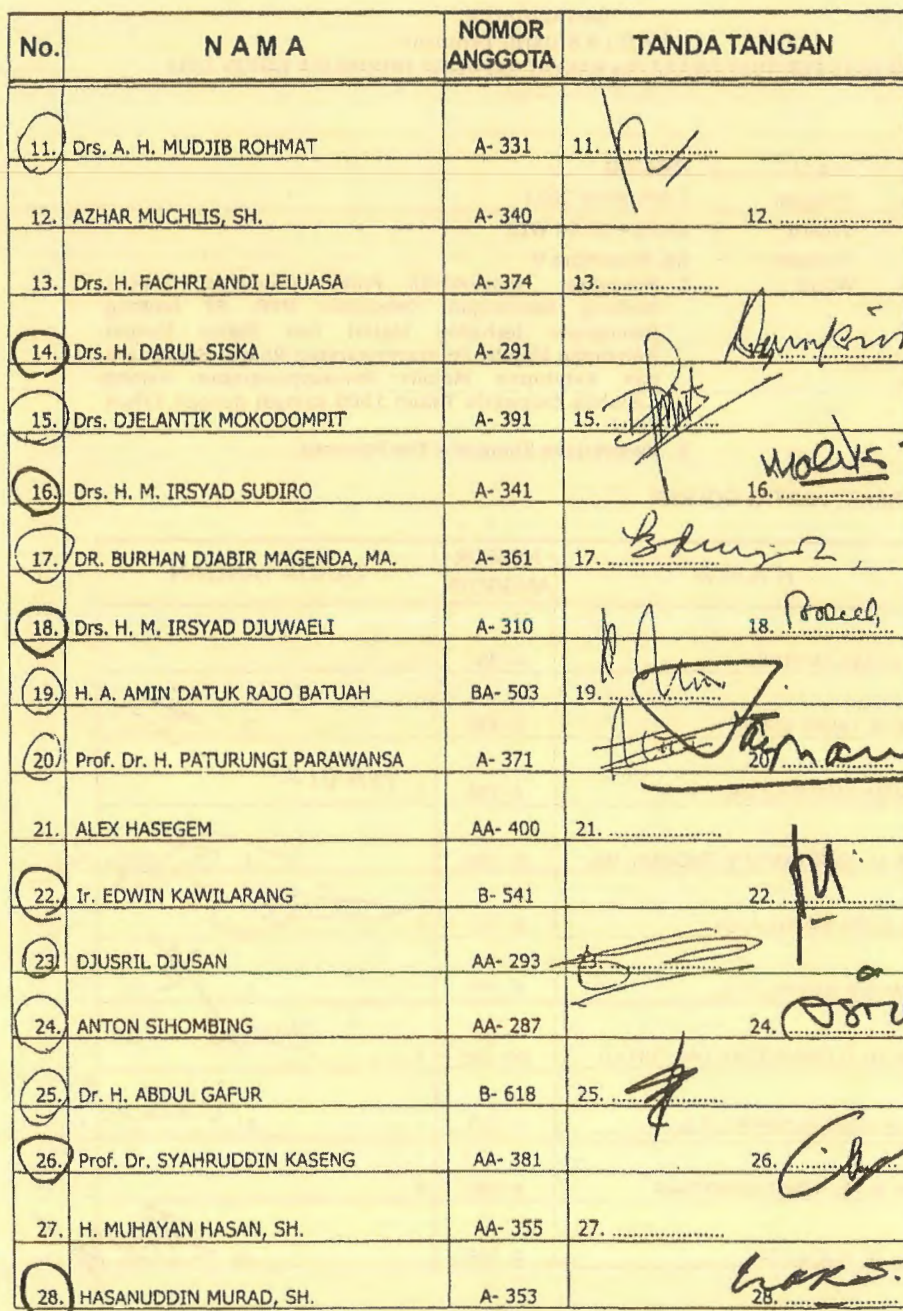 No. N A M A NOMOR ANGGOTA TANDA TANGAN
11. Drs. A. H. MUDJIB ROHMAT A- 331 11. ....................
12. AZHAR MUCHLIS, SH. A- 340 12. ....................
13. Drs. H. FACHRI ANDI LELUASA A- 374 13. ....................
14. Drs. H. DARUL SISKA A- 291
15. Drs. DJELANTIK MOKODOMPIT A- 391 15. ....................
16. Drs. H. M. IRSYAD SUDIRO A- 341 16. ....................
17. DR. BURHAN DJABIR MAGENDA, MA. A- 361 17. ....................
18. Drs. H. M. IRSYAD DJUWAELI A- 310 18. ....................
19. H. A. AMIN DATUK RAJO BATUAH BA- 503 19. ....................
20. Prof. Dr. H. PATURUNGI PARAWANSA A- 371 20. ....................
21. ALEX HASEGEM AA- 400 21. ....................
22. Ir. EDWIN KAWILARANG B- 541 22. ....................
23. DJUSRIL DJUSAN AA- 293 23. ....................
24. ANTON SIHOMBING AA- 287 24. ....................
25. Dr. H. ABDUL GAFUR B- 618 25. ....................
26. Prof. Dr. SYAHRUDDIN KASENG AA- 381 26. ....................
27. H. MUHAYAN HASAN, SH. AA- 355 27. ....................
28. HASANUDDIN MURAD, SH. A- 353 28. ....................